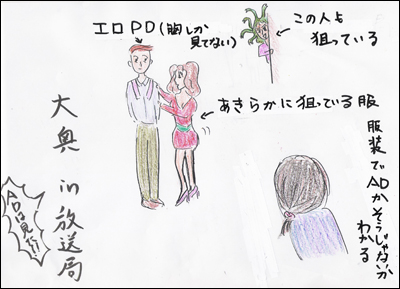 エロPD(胸しか
見てない)
この人も
狙っている
あきらかに狙っている服
服装でADかそうじゃないか
わかる
大奥 in 放送局
ADは見た!!